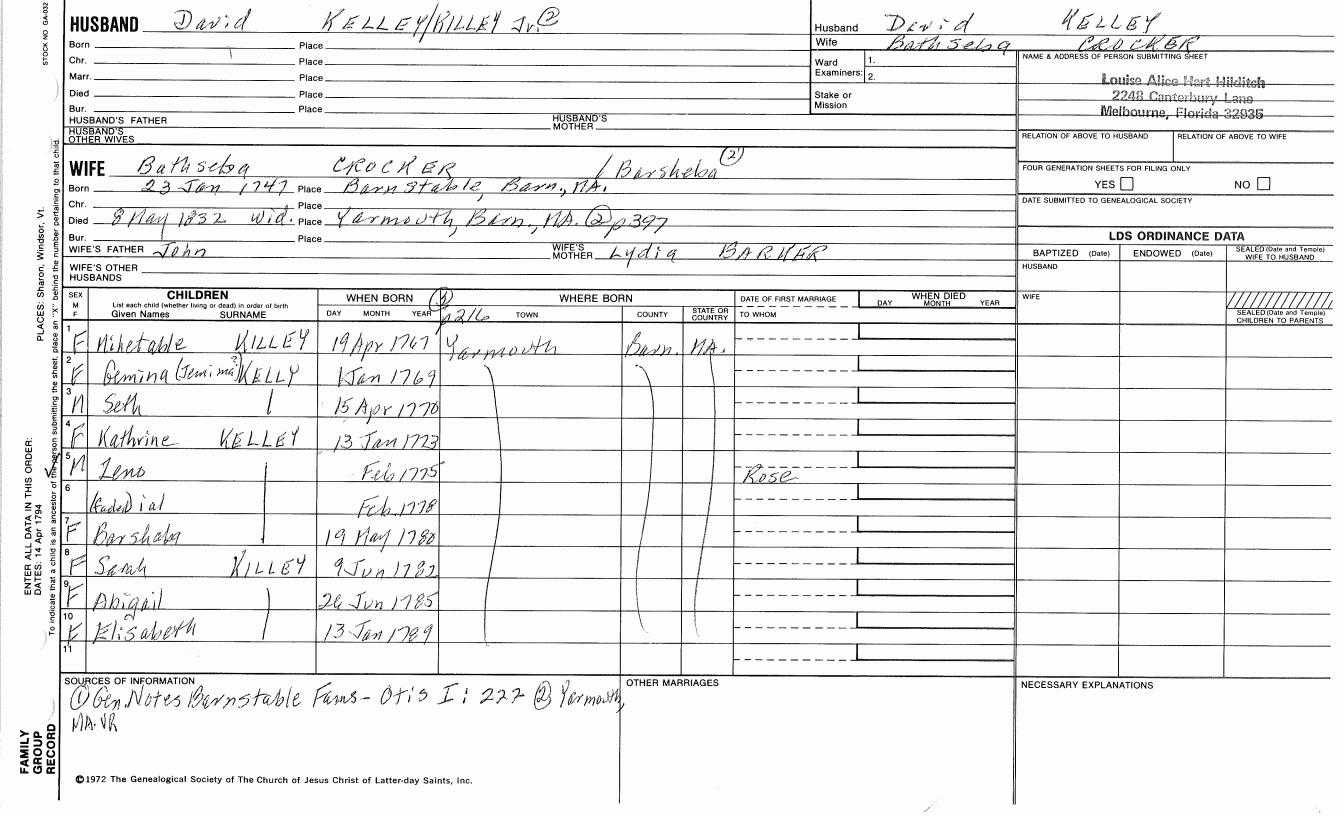 STOCK NO GA-032
HUSBAND David KELLEY/KILLEY Jr. ②
Born Place
Chr. Place
Marr. Place
Died Place
Bur. Place
HUSBAND'S FATHER HUSBAND'S MOTHER
HUSBAND'S OTHER WIVES
Husband David KELLEY
Wife Bathseba CROCKER
Ward Examiners: 1.
2.
Stake or Mission
NAME & ADDRESS OF PERSON SUBMITTING SHEET
Louise Alice Hart Hilditch
2248 Canterbury Lane
Melbourne, Florida 32935
RELATION OF ABOVE TO HUSBAND RELATION OF ABOVE TO WIFE
FOUR GENERATION SHEETS FOR FILING ONLY
YES NO
DATE SUBMITTED TO GENEALOGICAL SOCIETY
WIFE Bathseba CROCKER / Barsheba ②
Born 23 Jan 1747 Place Barnstable, Barn., MA.
Chr. Place
Died 8 May 1832 Wid. Place Yarmouth, Barn., MA. ② p397
Bur. Place
WIFE'S FATHER John WIFE'S MOTHER Lydia BARKER
WIFE'S OTHER HUSBANDS
LDS ORDINANCE DATA
BAPTIZED (Date) ENDOWED (Date) SEALED (Date and Temple) WIFE TO HUSBAND
HUSBAND
WIFE
SEALED (Date and Temple) CHILDREN TO PARENTS
SEX M F
CHILDREN
List each child (whether living or dead) in order of birth
Given Names SURNAME
WHEN BORN
DAY MONTH YEAR
p216
WHERE BORN
TOWN COUNTY STATE OR COUNTRY
DATE OF FIRST MARRIAGE
TO WHOM
WHEN DIED
DAY MONTH YEAR
1 F Mihetable KILLEY 19 Apr 1767 Yarmouth Barn. MA.
2 F Gemina (Jemima?) KELLY 1 Jan 1769
3 M Seth 15 Apr 1770
4 F Kathrine KELLEY 13 Jan 1773
5 M Zeno Feb 1775 Rose
6 (faded) ial Feb. 1778
7 F Barshaba 19 May 1780
8 F Sarah KILLEY 9 Jun 1782
9 F Abigail 26 Jun 1785
10 F Elisabeth 13 Jan 1789
11
SOURCES OF INFORMATION
① Gen. Notes Barnstable Fams - Otis I: 227 ② Yarmouth,
MA. VR
OTHER MARRIAGES
NECESSARY EXPLANATIONS
©1972 The Genealogical Society of The Church of Jesus Christ of Latter-day Saints, Inc.
FAMILY GROUP RECORD
ENTER ALL DATA IN THIS ORDER:
DATES: 14 Apr 1794 PLACES: Sharon, Windsor, Vt.
To indicate that a child is an ancestor of the person submitting the sheet, place an "X" behind the number pertaining to that child.